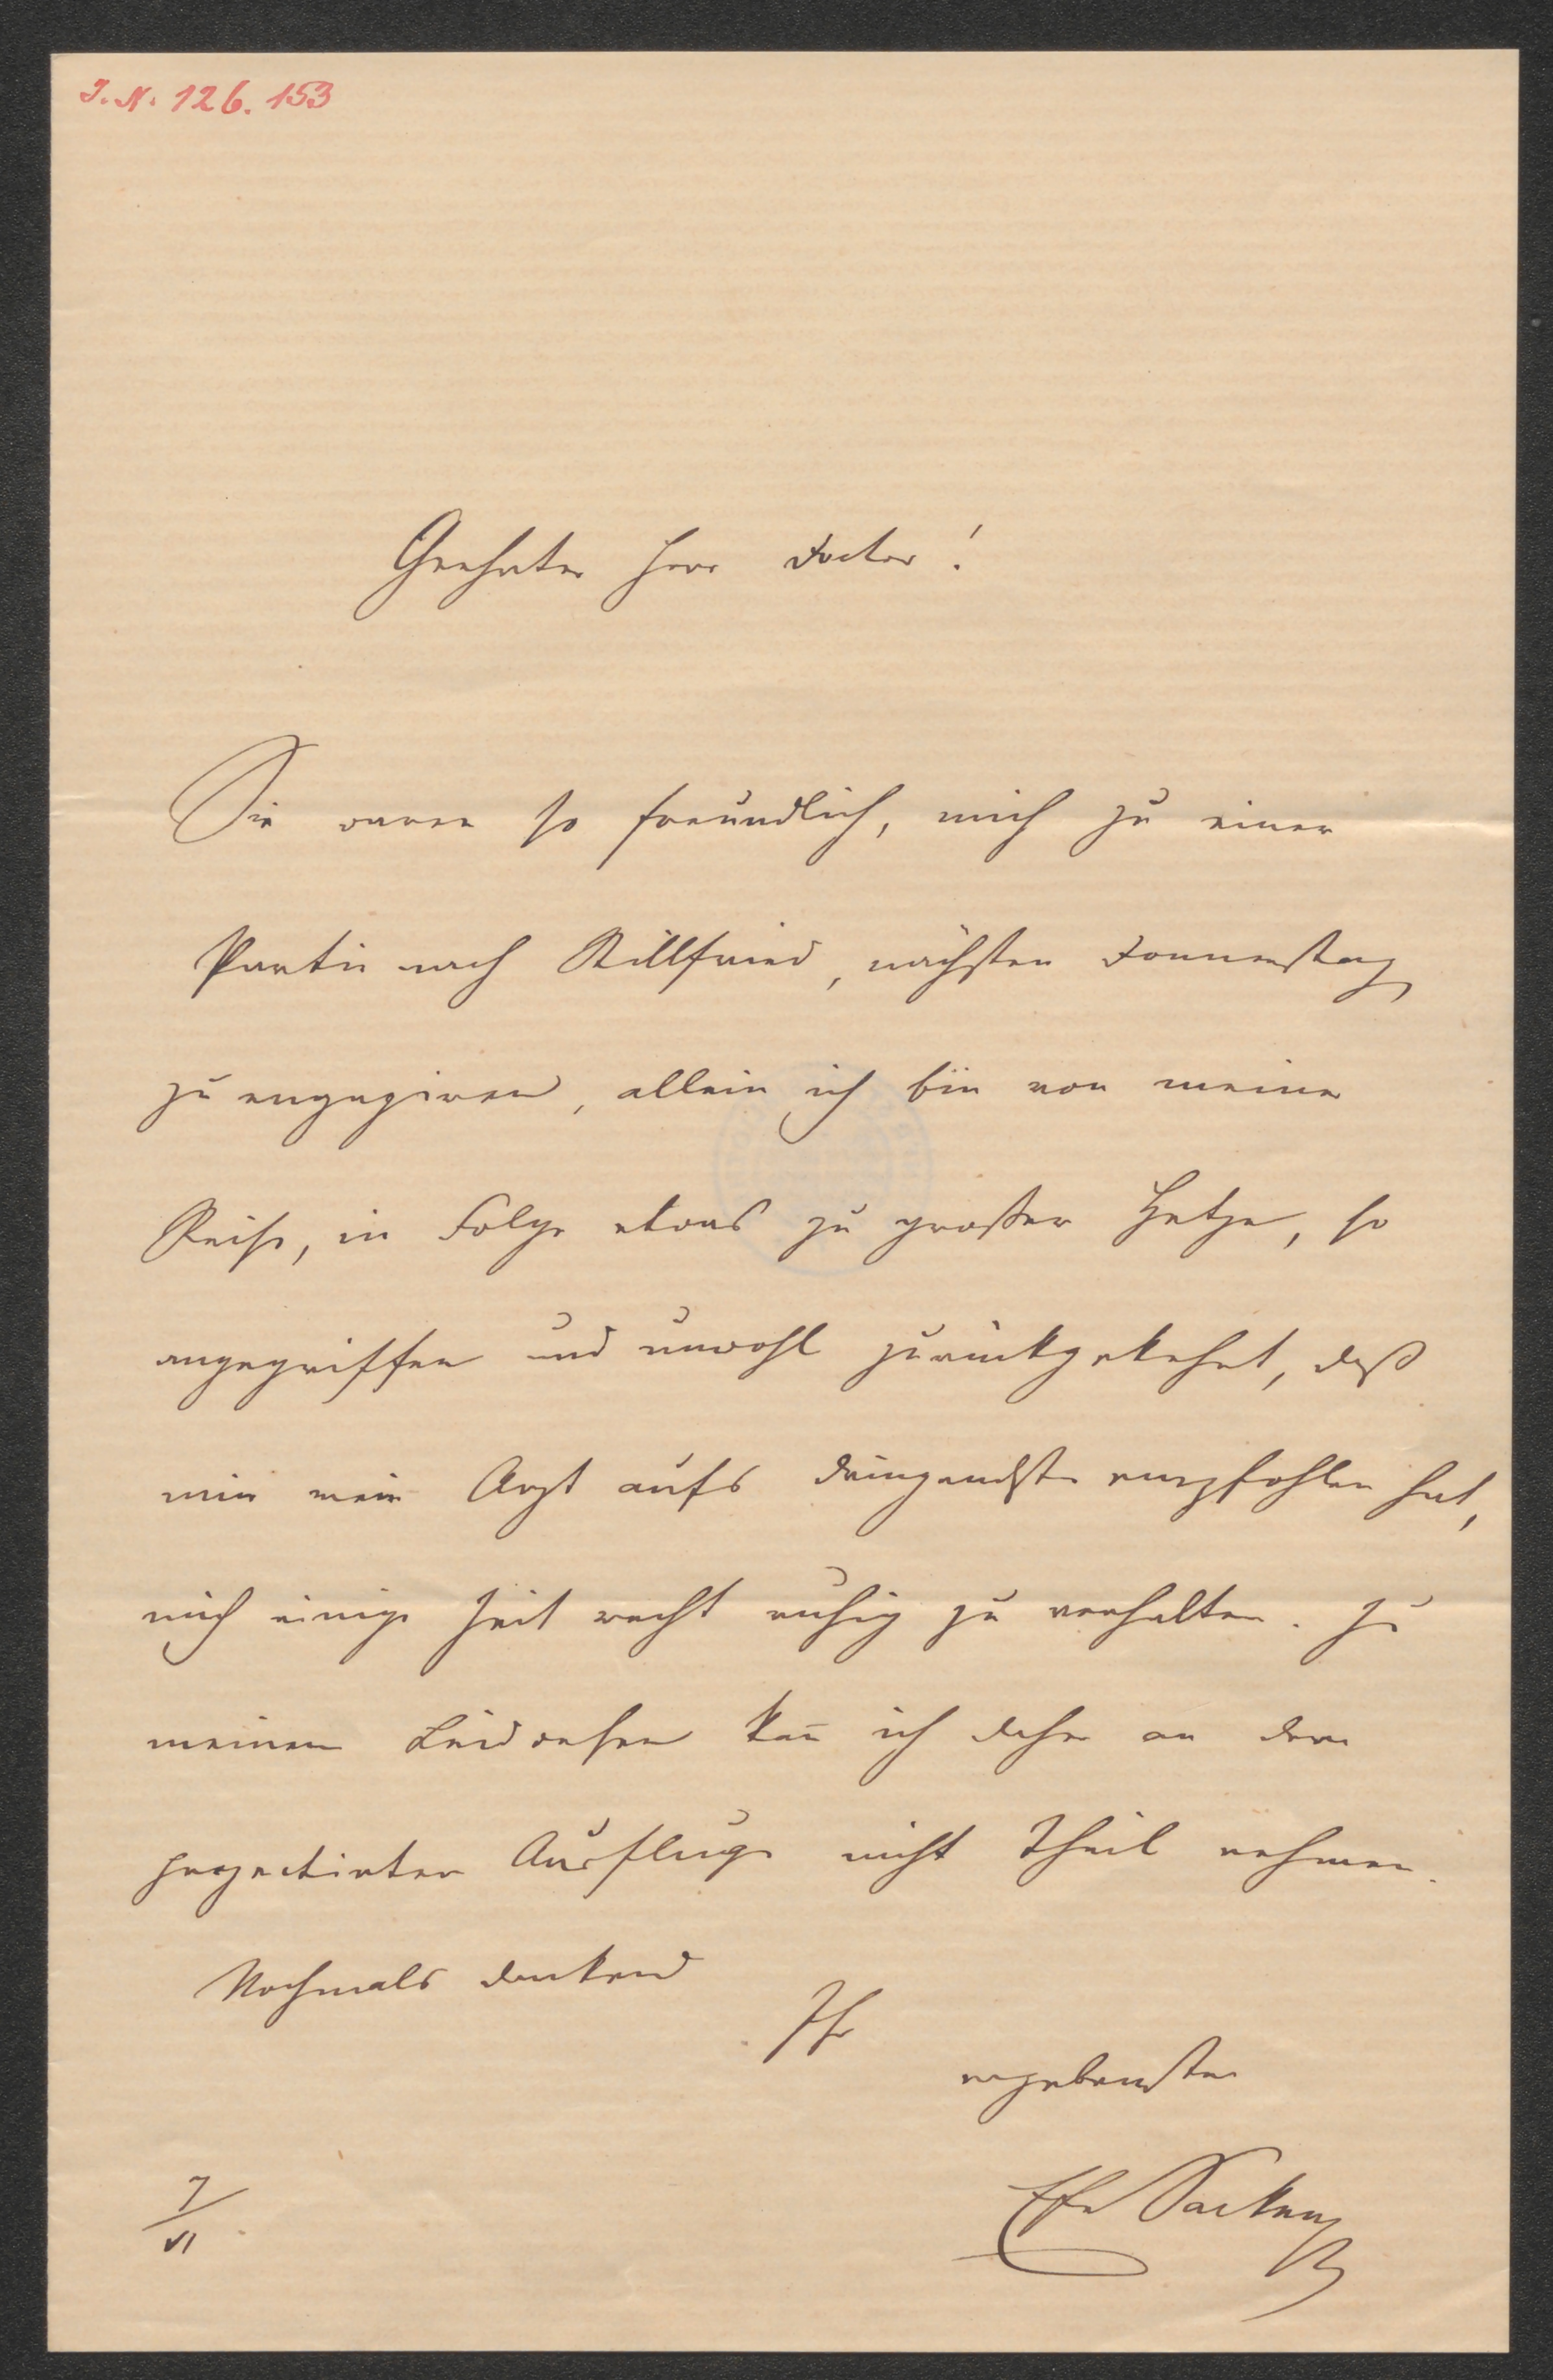 J. N. 126.153
Geehrter Herr Doctor!
Sie waren so freundlich, mich zu einer
Partie nach Stillfried, nächsten Donnerstag
zu engagiren, allein ich bin von meiner
Reise, in Folge etwas zu großer Hetze, so
angegriffen und unwohl zurückgekehrt, daß
mir mein Arzt aufs dringendste empfohlen hat,
mich einige Zeit recht ruhig zu verhalten. Zu
meinem Leidwesen kan̅ ich daher an dem
projectirten Ausfluge nicht Theil nehmen.
Nochmals dankend
Ihr
ergebenster
Sacken
7/VI